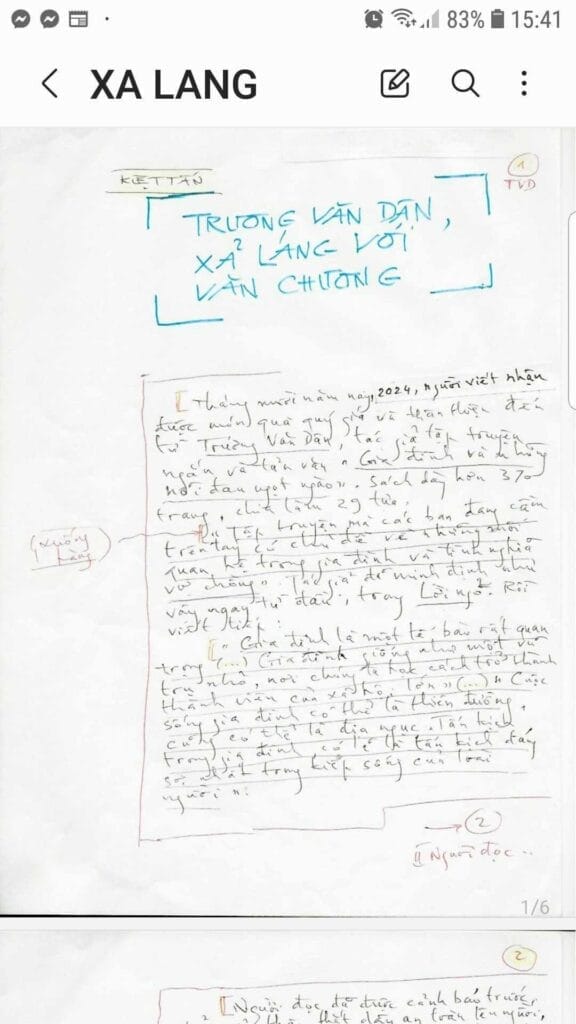 83% 15:41
XA LANG
1
TVD
KIỆT TẤN
TRƯƠNG VĂN DÂN,
XẢ LÁNG VỚI
VĂN CHƯƠNG
[Tháng mười năm nay, 2024, người viết nhận
được món quà quý giá và thân thiện đến
từ Trương Văn Dân, tác giả tập truyện
ngắn và tản văn « Gia đình và những
nỗi đau ngọt ngào ». Sách dày hơn 370
trang, chia làm 29 tựa.
(xuống hàng)
[« Tập truyện mà các bạn đang cầm
trên tay có chủ đề về những mối
quan hệ trong gia đình và tình nghĩa
vợ chồng » Tác giả đã minh định như
vậy ngay từ đầu, trong Lời ngỏ. Rồi
viết tiếp:
[« Gia đình là một tế bào rất quan
trọng (...) Gia đình giống như một vũ
trụ nhỏ, nơi chúng ta học cách trở thành
thành viên của xã hội lớn » (...) « Cuộc
sống gia đình có thể là thiên đường,
cũng có thể là địa ngục. Tấn kịch
trong gia đình có lẽ là tấn kịch đáng
sợ nhất trong kiếp sống của loài
người »:
→ 2
Người đọc..
1/6
2
[Người đọc đã được cảnh báo trước,
thắt dây an toàn